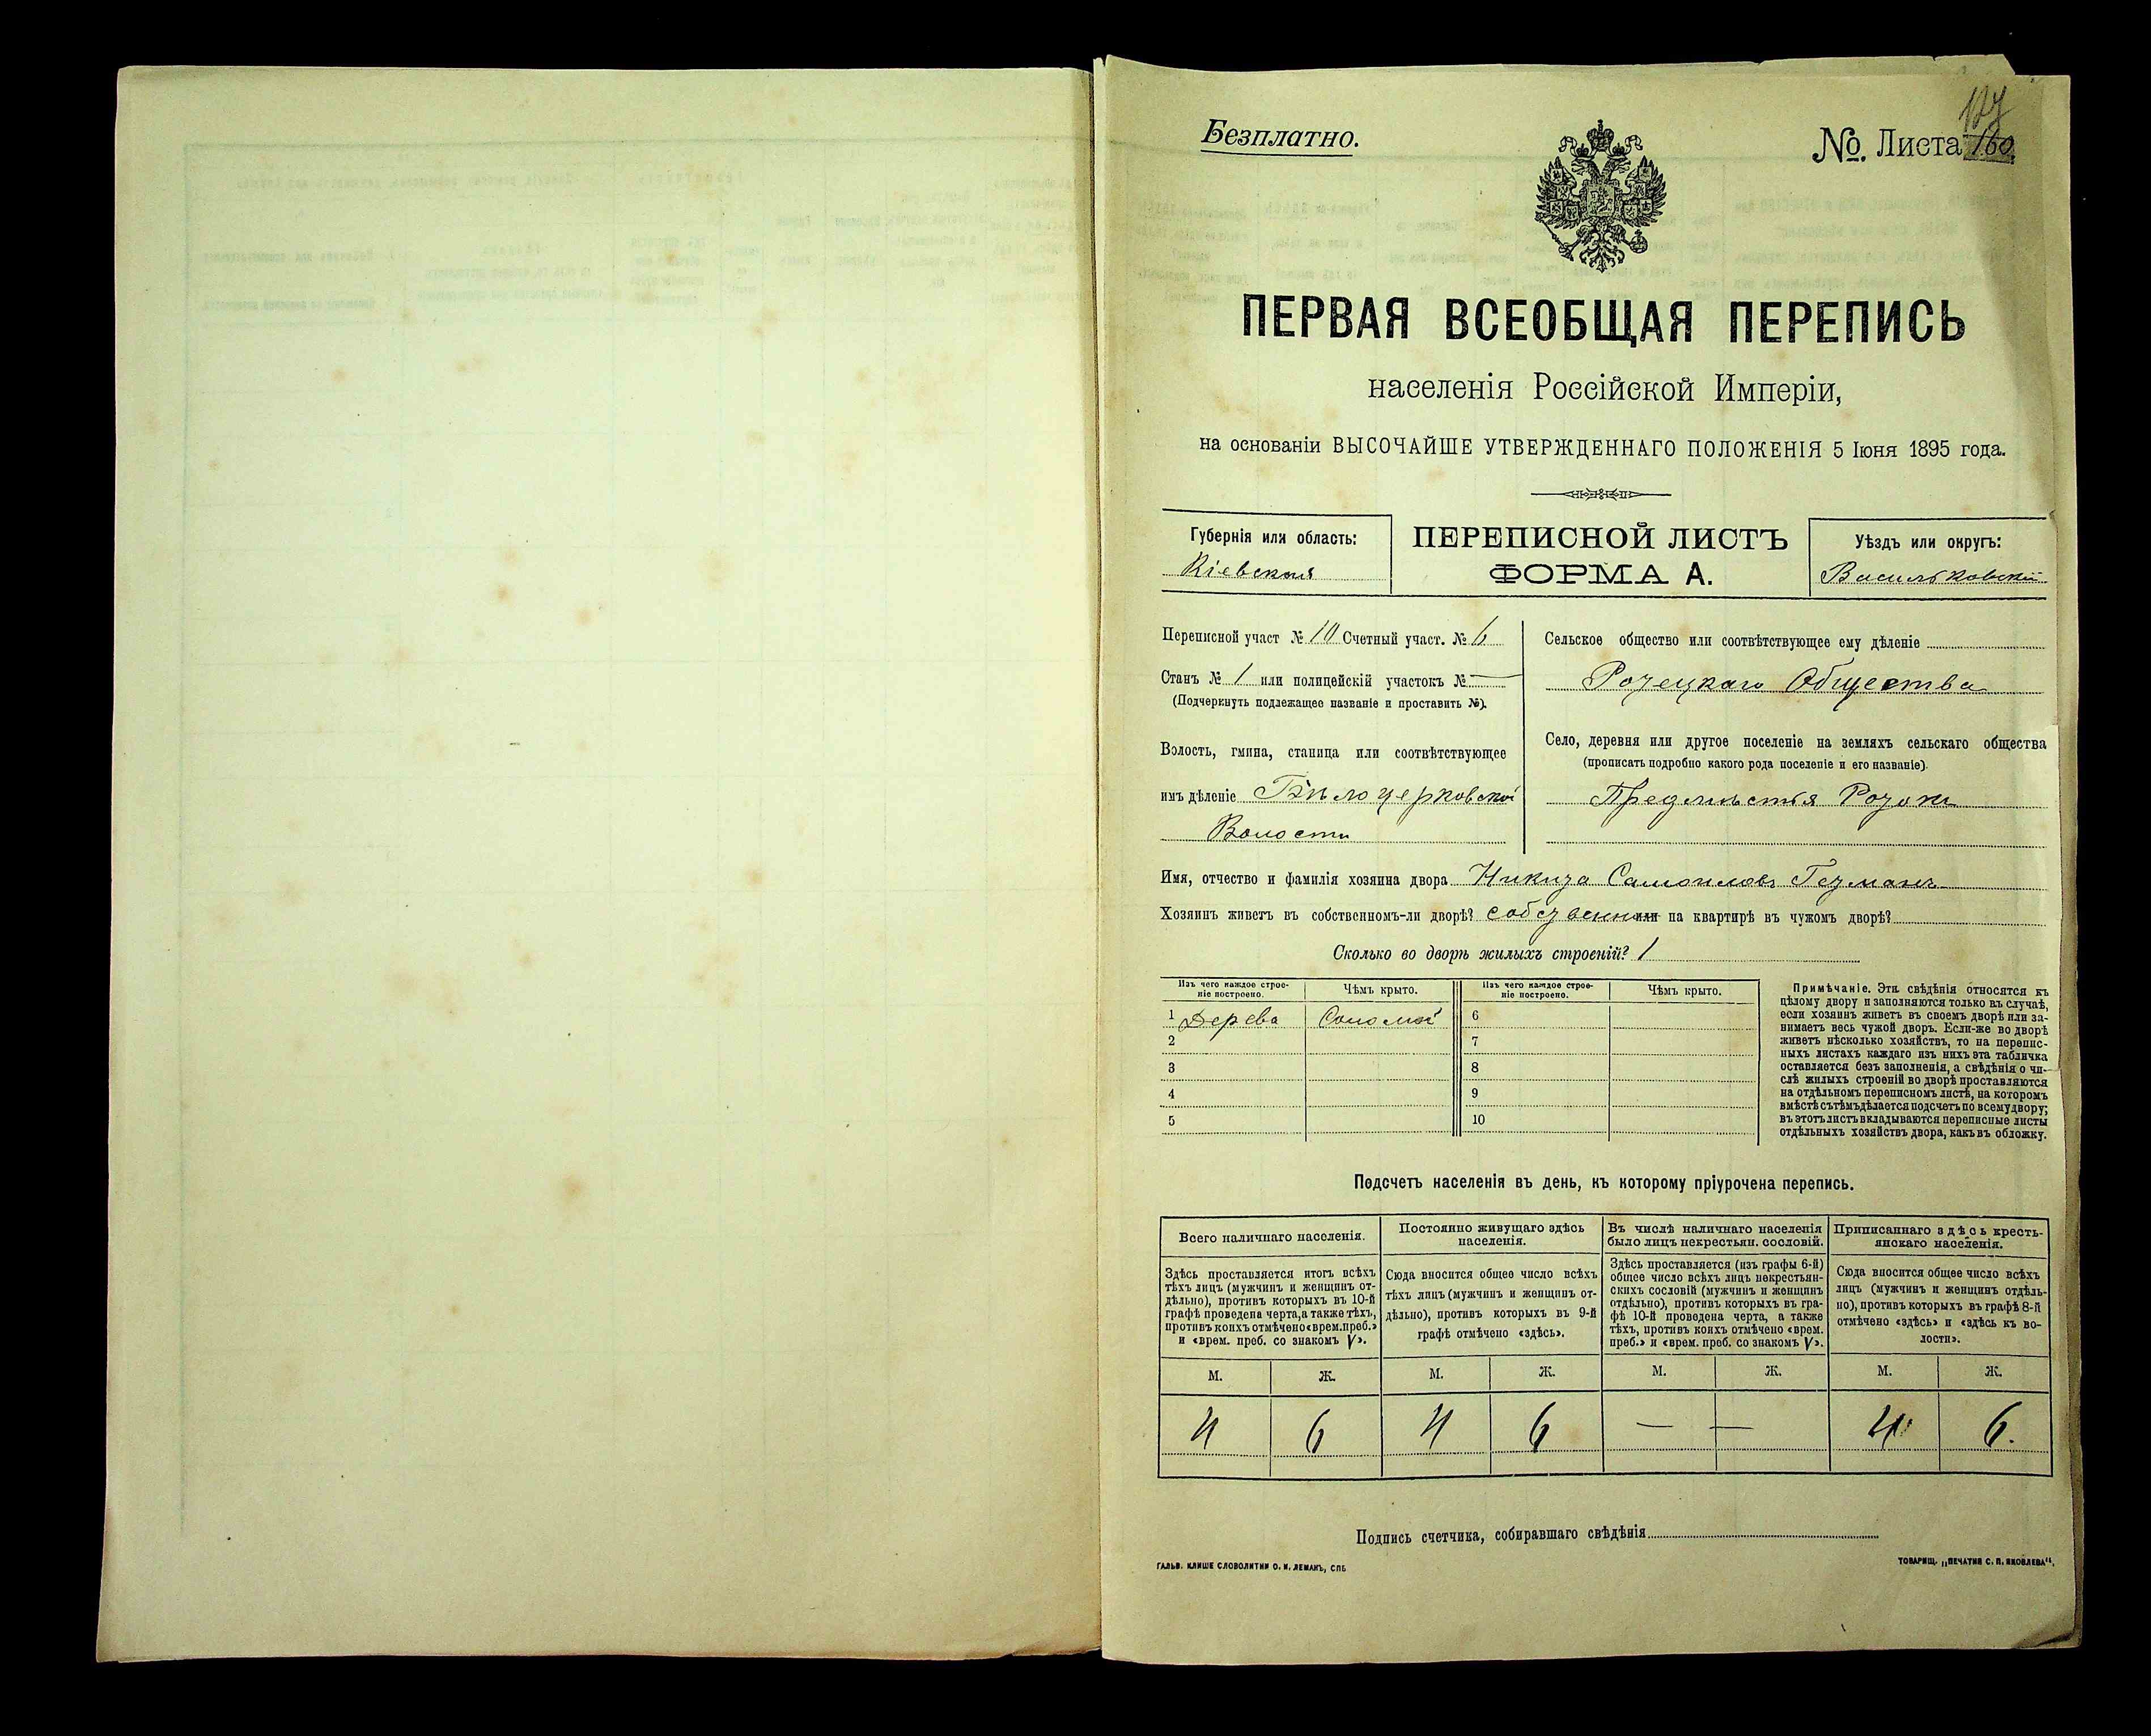 Безплатно.
№. Листа 160
127
ПЕРВАЯ ВСЕОБЩАЯ ПЕРЕПИСЬ
населенія Россійской Имперіи,
на основаніи ВЫСОЧАЙШЕ УТВЕРЖДЕННАГО ПОЛОЖЕНІЯ 5 Іюня 1895 года.
Губернія или область:
Кіевская
ПЕРЕПИСНОЙ ЛИСТЪ
ФОРМА А.
Уѣздъ или округъ:
Васильковскій
Переписной участ № 10 Счетный участ. № 6
Станъ № 1 или полицейскій участокъ № —
(Подчеркнуть подлежащее названіе и проставить №).
Волость, гмина, станица или соотвѣтствующее
имъ дѣленіе Бѣлоцерковской
Волости
Сельское общество или соотвѣтствующее ему дѣленіе
Общества
Село, деревня или другое поселеніе на земляхъ сельскаго общества
(прописать подробно какого рода поселеніе и его названіе).
Предмѣстья
Имя, отчество и фамилія хозяина двора Никита Самоиловъ Гетманъ
Хозяинъ живетъ въ собственномъ-ли дворѣ? собствен или на квартирѣ въ чужомъ дворѣ?
Сколько во дворѣ жилыхъ строеній? 1
Изъ чего каждое строе-
ніе построено.
Чѣмъ крыто.
Изъ чего каждое строе-
ніе построено.
Чѣмъ крыто.
1 Дерева Соломой 6
2 7
3 8
4 9
5 10
Примѣчаніе. Эти свѣдѣнія относятся къ
цѣлому двору и заполняются только въ случаѣ,
если хозяинъ живетъ въ своемъ дворѣ или за-
нимаетъ весь чужой дворъ. Если-же во дворѣ
живетъ нѣсколько хозяйствъ, то на перепис-
ныхъ листахъ каждаго изъ нихъ эта табличка
оставляется безъ заполненія, а свѣдѣнія о чи-
слѣ жилыхъ строеній во дворѣ проставляются
на отдѣльномъ переписномъ листѣ, на которомъ
вмѣстѣ съ тѣмъ дѣлается подсчетъ по всему двору;
въ этотъ листъ вкладываются переписные листы
отдѣльныхъ хозяйствъ двора, какъ въ обложку.
Подсчетъ населенія въ день, къ которому пріурочена перепись.
Всего наличнаго населенія.
Здѣсь проставляется итогъ всѣхъ
тѣхъ лицъ (мужчинъ и женщинъ от-
дѣльно), противъ которыхъ въ 10-й
графѣ проведена черта, а также тѣхъ,
противъ коихъ отмѣчено «врем. преб.»
и «врем. преб. со знакомъ V».
Постоянно живущаго здѣсь
населенія.
Сюда вносится общее число всѣхъ
тѣхъ лицъ (мужчинъ и женщинъ от-
дѣльно), противъ которыхъ въ 9-й
графѣ отмѣчено «здѣсь».
Въ числѣ наличнаго населенія
было лицъ некрестьян. сословій.
Здѣсь проставляется (изъ графы 6-й)
общее число всѣхъ лицъ некрестьян-
скихъ сословій (мужчинъ и женщинъ
отдѣльно), противъ которыхъ въ гра-
фѣ 10-й проведена черта, а также
тѣхъ, противъ коихъ отмѣчено «врем.
преб.» и «врем. преб. со знакомъ V».
Приписаннаго здѣсь кресть-
янскаго населенія.
Сюда вносится общее число всѣхъ
лицъ (мужчинъ и женщинъ отдѣль-
но), противъ которыхъ въ графѣ 8-й
отмѣчено «здѣсь» и «здѣсь къ во-
лости».
М. Ж. М. Ж. М. Ж. М. Ж.
4 6 4 6 — — 4 6.
Подпись счетчика, собиравшаго свѣдѣнія
ГАЛЬВ. КЛИШЕ СЛОВОЛИТНИ О. И. ЛЕМАНЪ, СПБ
ТОВАРИЩ. „ПЕЧАТНЯ С. П. ЯКОВЛЕВА“.